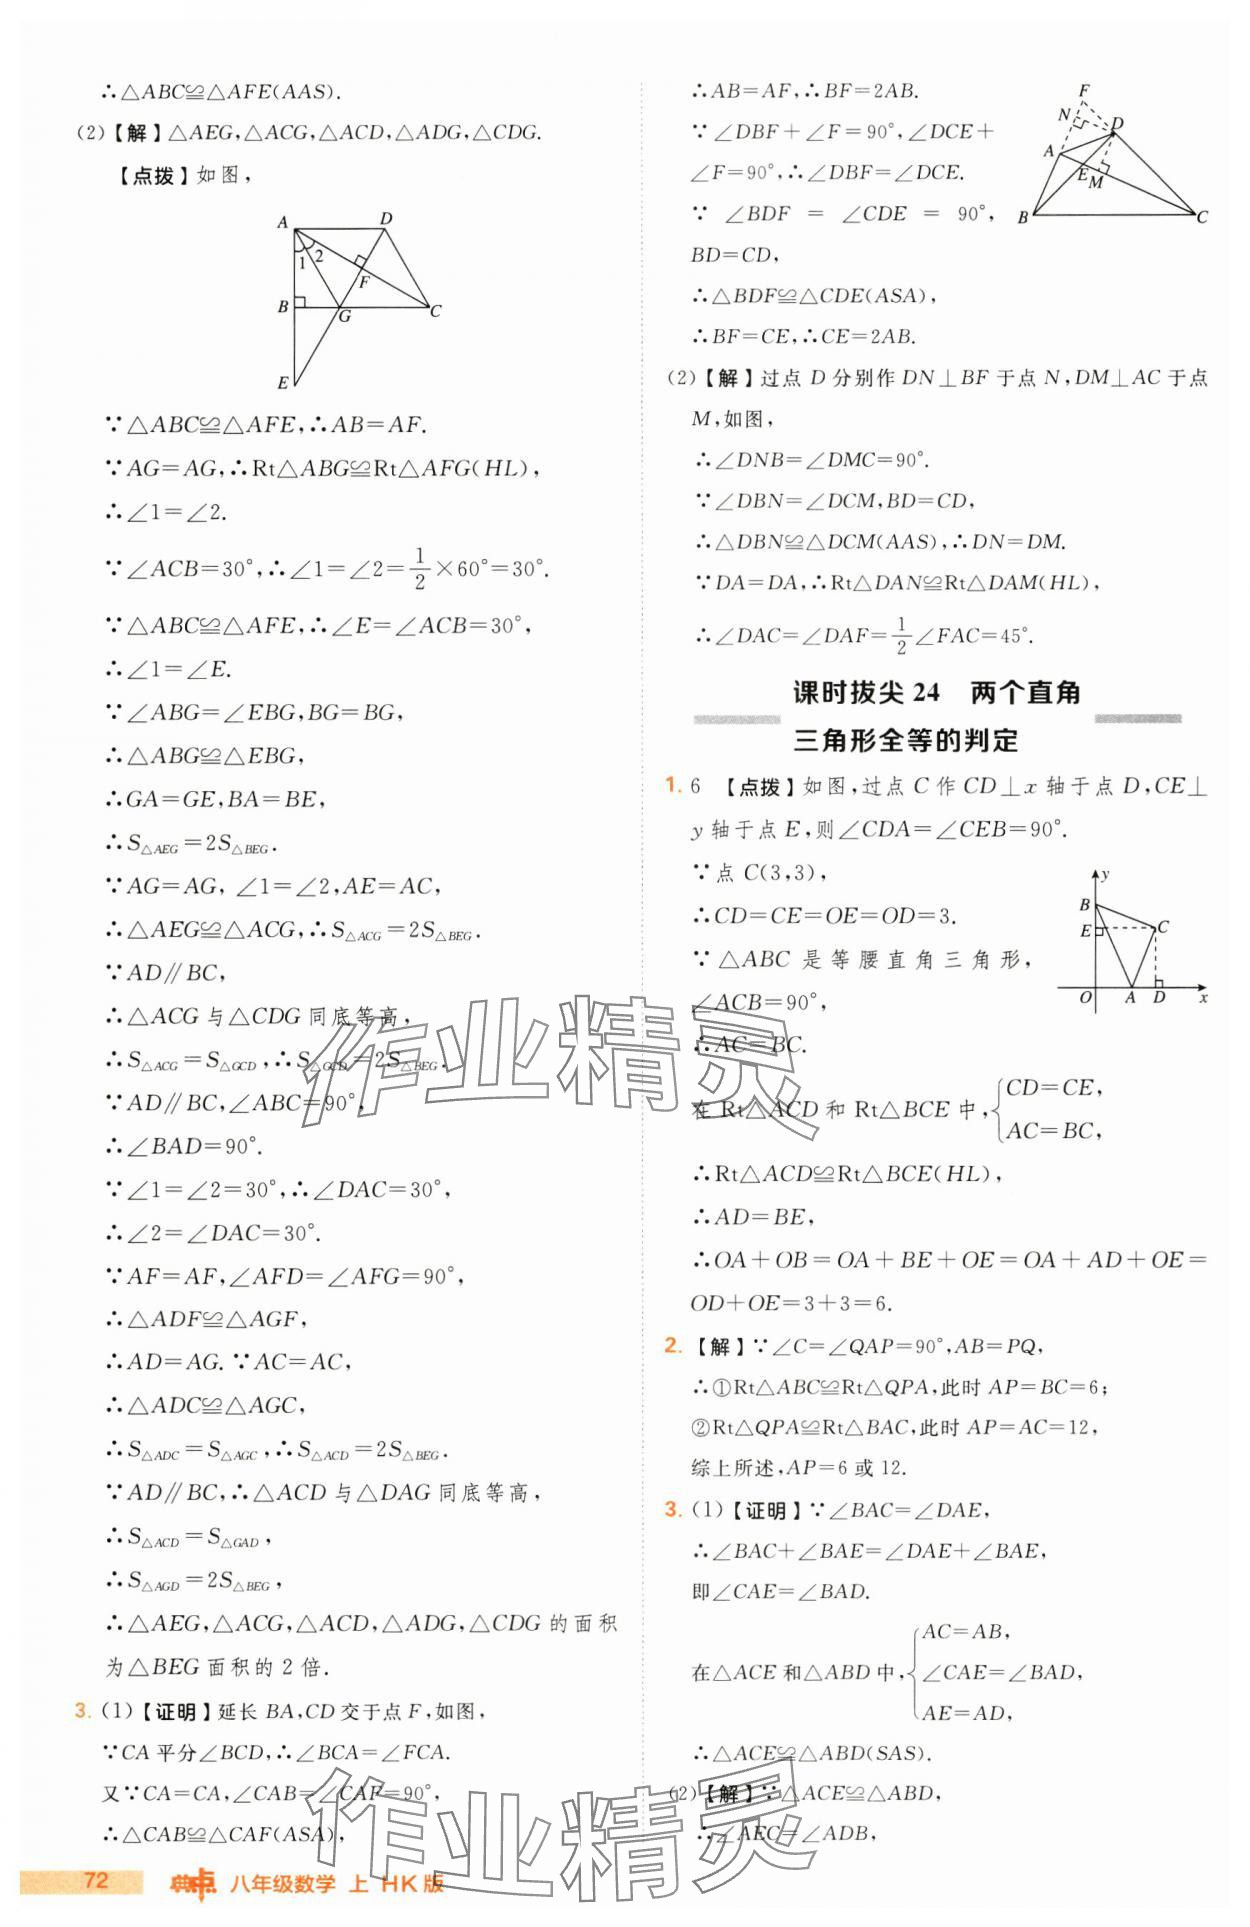 ∴△ABC≌△AFE(AAS).
(2)【解】△AEG,△ACG,△ACD,△ADG,△CDG.
【点拨】如图,
A D
1 2
F
B G C
E
∵△ABC≌△AFE,∴AB=AF.
∵AG=AG,∴Rt△ABG≌Rt△AFG(HL),
∴∠1=∠2.
∵∠ACB=30°,∴∠1=∠2=1/2×60°=30°.
∵△ABC≌△AFE,∴∠E=∠ACB=30°,
∴∠1=∠E.
∵∠ABG=∠EBG,BG=BG,
∴△ABG≌△EBG,
∴GA=GE,BA=BE,
∴S△AEG=2S△BEG.
∵AG=AG, ∠1=∠2,AE=AC,
∴△AEG≌△ACG,∴S△ACG=2S△BEG.
∵AD∥BC,
∴△ACG与△CDG同底等高,
∴S△ACG=S△GCD,∴S△GCD=2S△BEG.
∵AD∥BC,∠ABC=90°,
∴∠BAD=90°.
∵∠1=∠2=30°,∴∠DAC=30°,
∴∠2=∠DAC=30°.
∵AF=AF,∠AFD=∠AFG=90°,
∴△ADF≌△AGF,
∴AD=AG.∵AC=AC,
∴△ADC≌△AGC,
∴S△ADC=S△AGC,∴S△ACD=2S△BEG.
∵AD∥BC,∴△ACD与△DAG同底等高,
∴S△ACD=S△GAD,
∴S△AGD=2S△BEG,
∴△AEG,△ACG,△ACD,△ADG,△CDG的面积
为△BEG面积的2倍.
3.(1)【证明】延长BA,CD交于点F,如图,
∵CA平分∠BCD,∴∠BCA=∠FCA.
又∵CA=CA,∠CAB=∠CAF=90°,
∴△CAB≌△CAF(ASA),
∴AB=AF,∴BF=2AB.
∵∠DBF+∠F=90°,∠DCE+
∠F=90°,∴∠DBF=∠DCE.
∵ ∠BDF = ∠CDE = 90°,
BD=CD,
∴△BDF≌△CDE(ASA),
∴BF=CE,∴CE=2AB.
F
N D
A
E M
B C
(2)【解】过点D分别作DN⊥BF于点N,DM⊥AC于点
M,如图,
∴∠DNB=∠DMC=90°.
∵∠DBN=∠DCM,BD=CD,
∴△DBN≌△DCM(AAS),∴DN=DM.
∵DA=DA,∴Rt△DAN≌Rt△DAM(HL),
∴∠DAC=∠DAF=1/2∠FAC=45°.
课时拔尖24 两个直角
三角形全等的判定
1. 6 【点拨】如图,过点C作CD⊥x轴于点D,CE⊥
y轴于点E,则∠CDA=∠CEB=90°.
∵点C(3,3),
∴CD=CE=OE=OD=3.
∵△ABC是等腰直角三角形,
∠ACB=90°,
∴AC=BC.
y
B
E C
O A D x
在Rt△ACD和Rt△BCE中,{CD=CE,
AC=BC,
∴Rt△ACD≌Rt△BCE(HL),
∴AD=BE,
∴OA+OB=OA+BE+OE=OA+AD+OE=
OD+OE=3+3=6.
2.【解】∵∠C=∠QAP=90°,AB=PQ,
∴①Rt△ABC≌Rt△QPA,此时AP=BC=6;
②Rt△QPA≌Rt△BAC,此时AP=AC=12,
综上所述,AP=6或12.
3.(1)【证明】∵∠BAC=∠DAE,
∴∠BAC+∠BAE=∠DAE+∠BAE,
即∠CAE=∠BAD.
在△ACE和△ABD中,{AC=AB,
∠CAE=∠BAD,
AE=AD,
∴△ACE≌△ABD(SAS).
(2)【解】∵△ACE≌△ABD,
∴∠AEC=∠ADB,
作业精灵
作业精灵
72 典点 八年级数学 上 HK版